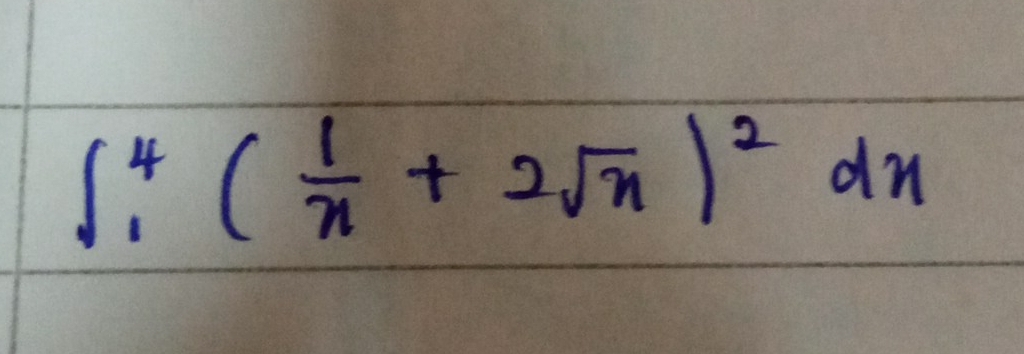 ∫₁⁴ (1/x + 2√x)² dx